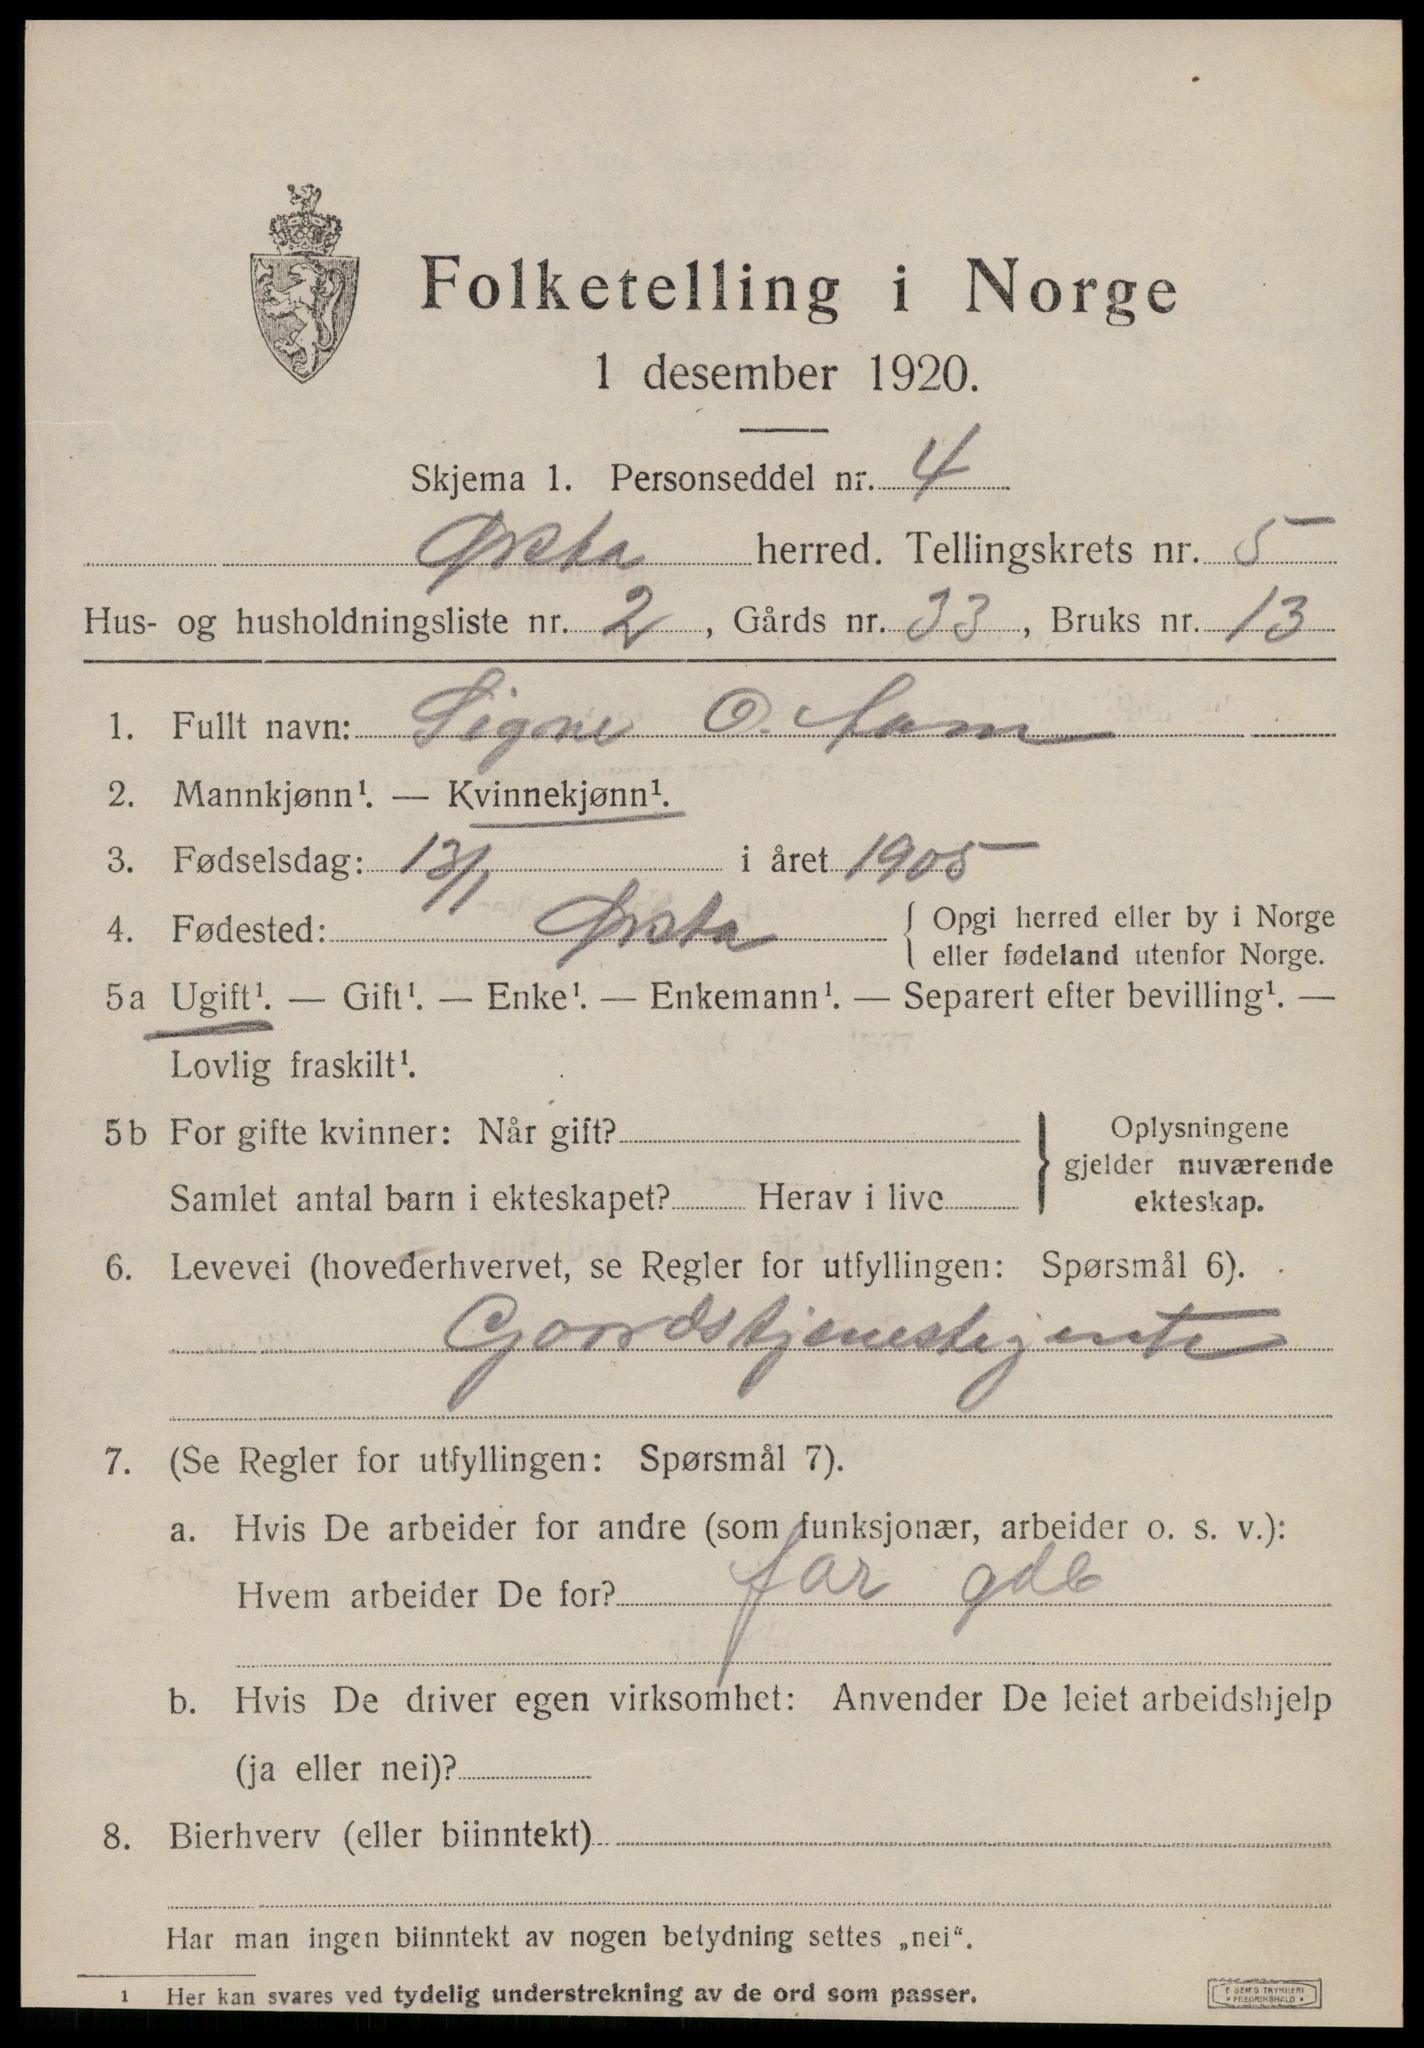 Folketelling i Norge
1 desember 1920.
Skjema 1. Personseddel nr. 4
Ørsta herred. Tellingskrets nr. 5
Hus- og husholdningsliste nr. 2, Gårds nr. 33, Bruks nr. 13
1. Fullt navn: Signe O. Aam
2. Mannkjønn¹. — Kvinnekjønn¹.
3. Fødselsdag: 13/1 i året 1905
4. Fødested: Ørsta { Opgi herred eller by i Norge
eller fødeland utenfor Norge.
5a Ugift¹. — Gift¹. — Enke¹. — Enkemann¹. — Separert efter bevilling¹. —
Lovlig fraskilt¹.
5b For gifte kvinner: Når gift?
Samlet antal barn i ekteskapet? Herav i live
} Oplysningene
gjelder nuværende
ekteskap.
6. Levevei (hovederhvervet, se Regler for utfyllingen: Spørsmål 6).
Goordstjenestejente
7. (Se Regler for utfyllingen: Spørsmål 7).
a. Hvis De arbeider for andre (som funksjonær, arbeider o. s. v.):
Hvem arbeider De for? far gdb
b. Hvis De driver egen virksomhet: Anvender De leiet arbeidshjelp
(ja eller nei)?
8. Bierhverv (eller biinntekt)
Har man ingen biinntekt av nogen betydning settes „nei“.
1 Her kan svares ved tydelig understrekning av de ord som passer.
E. SEM'S TRYKKERI
* FREDRIKSHALD *